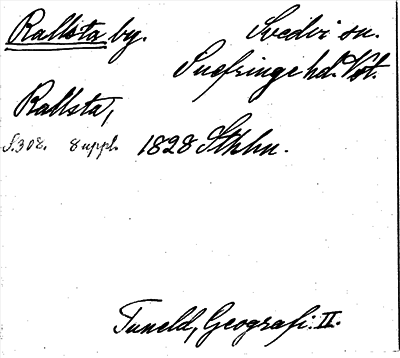 Rallsta by. Svedvi sn.
Snefringe hd. Vst.
Rallsta,
S.308. 8 uppl. 1828 Sthlm.
Tuneld, Geografi. II.